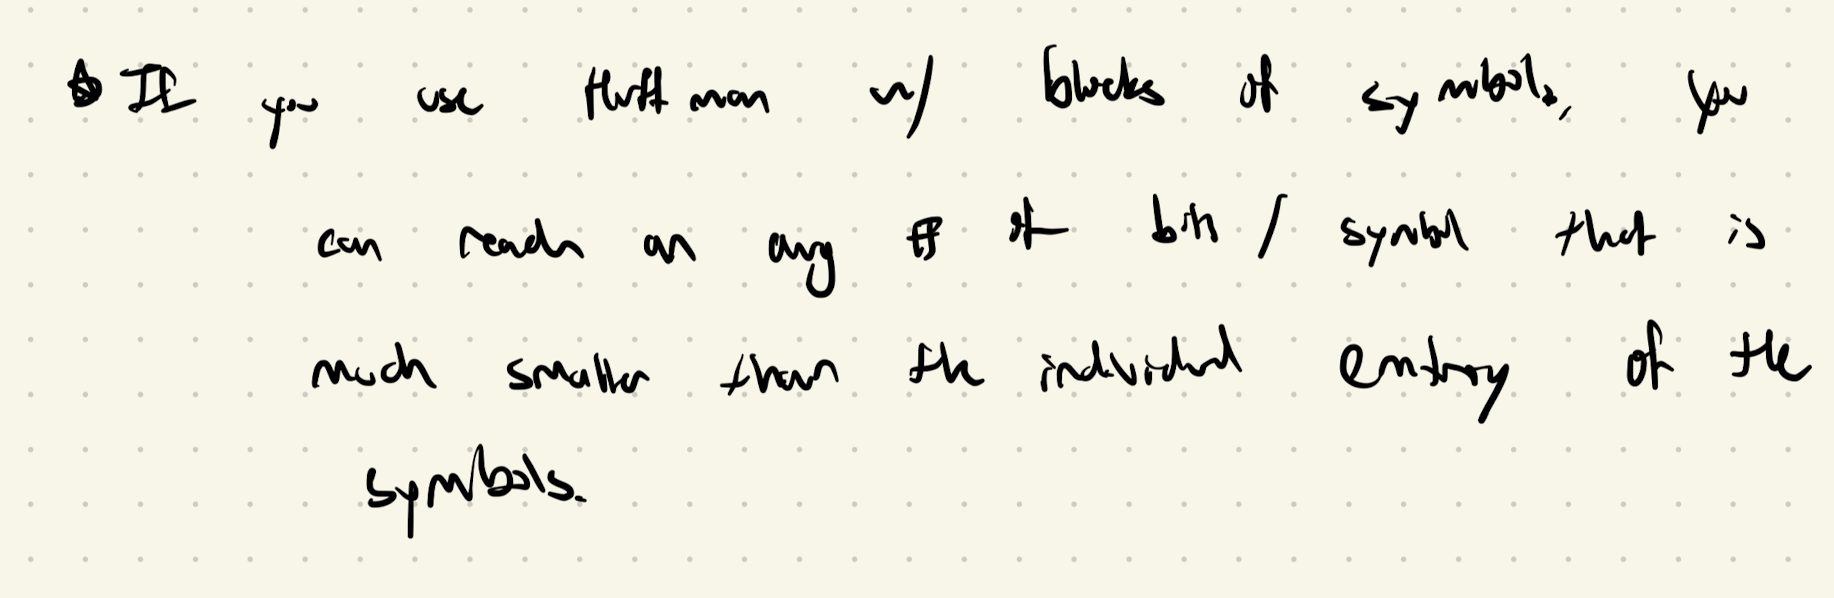 ☆ If you use Huffman w/ blocks of symbols, you
can reach an avg # of bits / symbol that is
much smaller than the individual entropy of the
symbols.